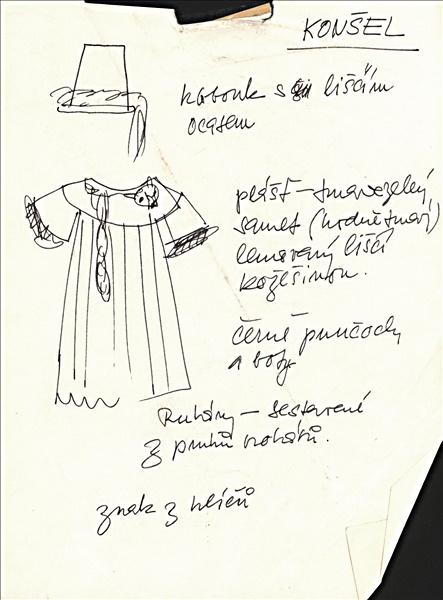 KONŠEL
klobouk s liščím
ocasem
plášť – tmavozelený
samet (hodně tmavý)
lemovaný liščí
kožešinou.
černé punčochy
a boty
Rukávy – sestavené
z pruhů
znak z klíčů